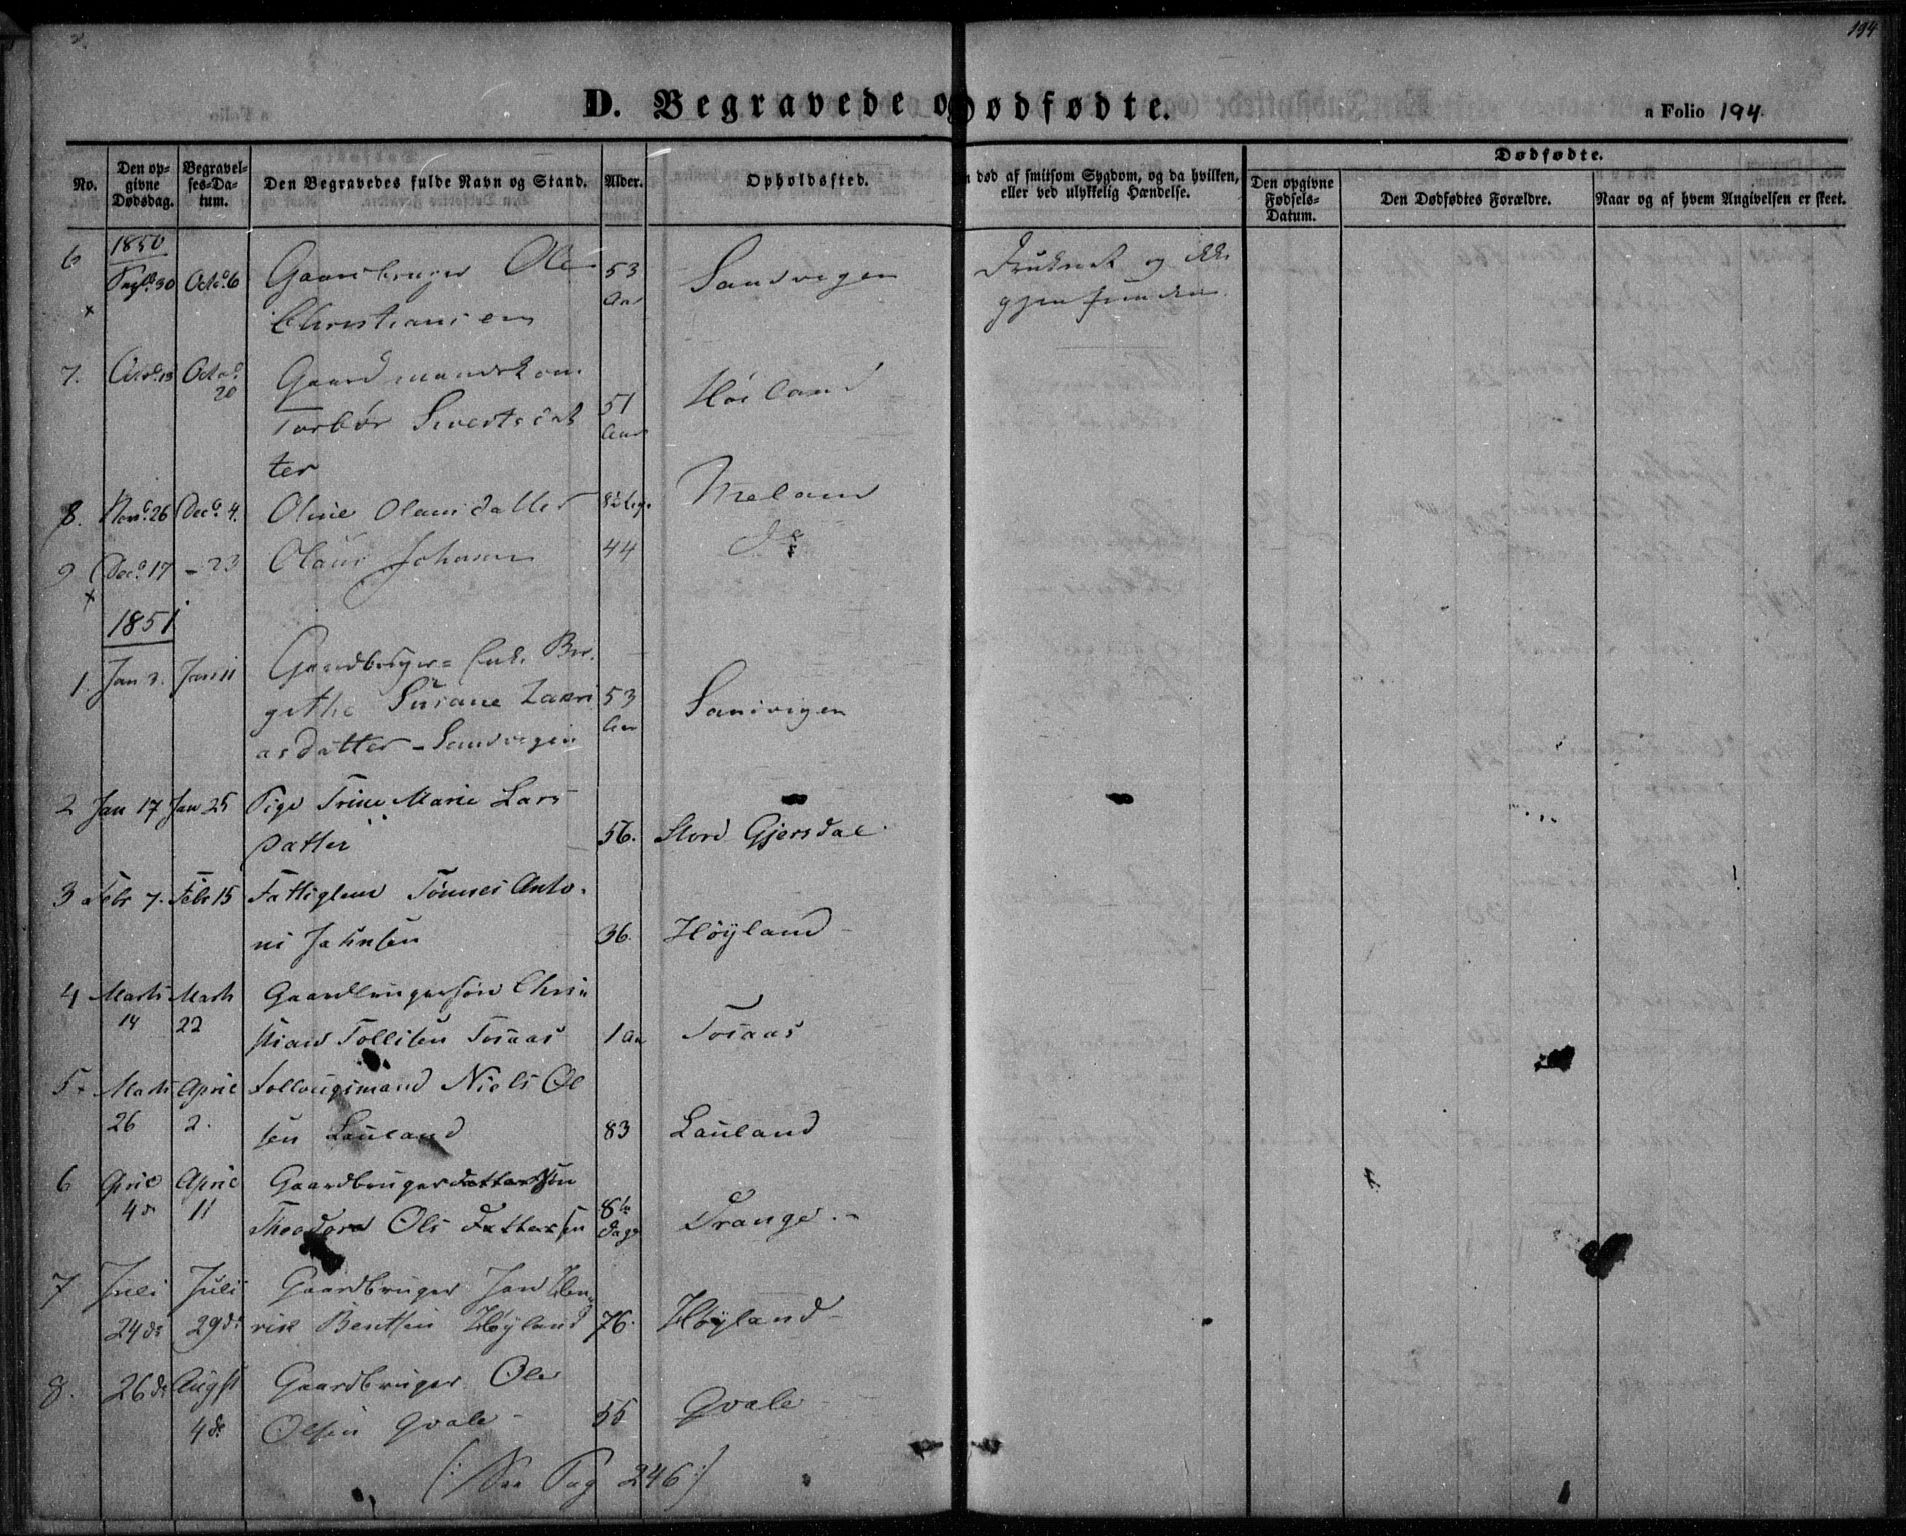 194
D. Begravede o Dødfødte.
a Folio 194.
No.
Den opgivne Dødsdag.
Begravelses-Datum.
Den Begravedes fulde Navn og Stand.
Alder.
Opholdssted.
død af smitsom Sygdom, og da hvilken, eller ved ulykkelig Hændelse.
Dødfødte.
Den opgivne Fødsels-Datum.
Den Dødfødtes Forældre.
Naar og af hvem Angivelsen er skeet.
1850
6 30 Octo. 6 Gaardbruger Ole 53 Sandvigen Druknet og ikke
Christiansen Aar gjenfunden.
7. Octo. 13 Octo. 20 Gaardmandskone
Torbør Sivertsdat 51 Høiland
ter Aar
8. Nov. 26 Dec. 4. Oline Olausdatter Meland
9 Dec. 17 - 23 Olaus Johan 44 do
1851
1. Jan 3. Jan 11 Gaardbruger= Enke Bir.
githe Susane Zakri 53 Sandvigen
asdatter - Sandvigen Aar
2 Jan 17 Jan 25 Pige Trine Marie Lars
datter 56. Stord Gjersdal
3 Febr 7. Febr 15 Fattiglem Tønnes Anto.
ni Jahnsen 36. Høyland
4 Marts 14 Marts 22 Gaardbrugersøn Chri=
stian Tollisen Tosaas 1 Aar Tosaas
5 Marts 26 April 2. Follougsmand Niels Ol
sen Lauland 83 Lauland
6 April 4de April 11 Gaardbruger datter søn
Theodor Ols datter sen 8te Dage Drange.
7 Juli 24de Juli 29de Gaardbruger Jan Hen=
rik Bentsen Høyland 76. Høyland
8. 26de Augst 4de Gaardbruger Ole
Olsen Qvale 55 Qvale
(: See Pag 246 :)